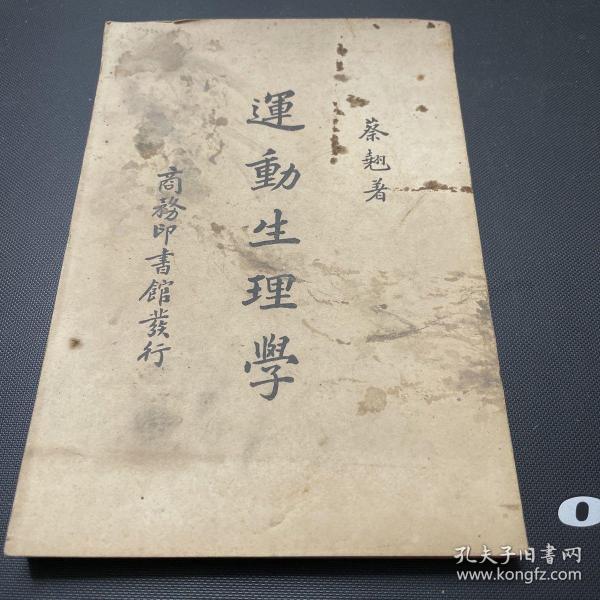 蔡翹著
運動生理學
商務印書館發行
0
孔夫子旧書网
www.kongfz.com